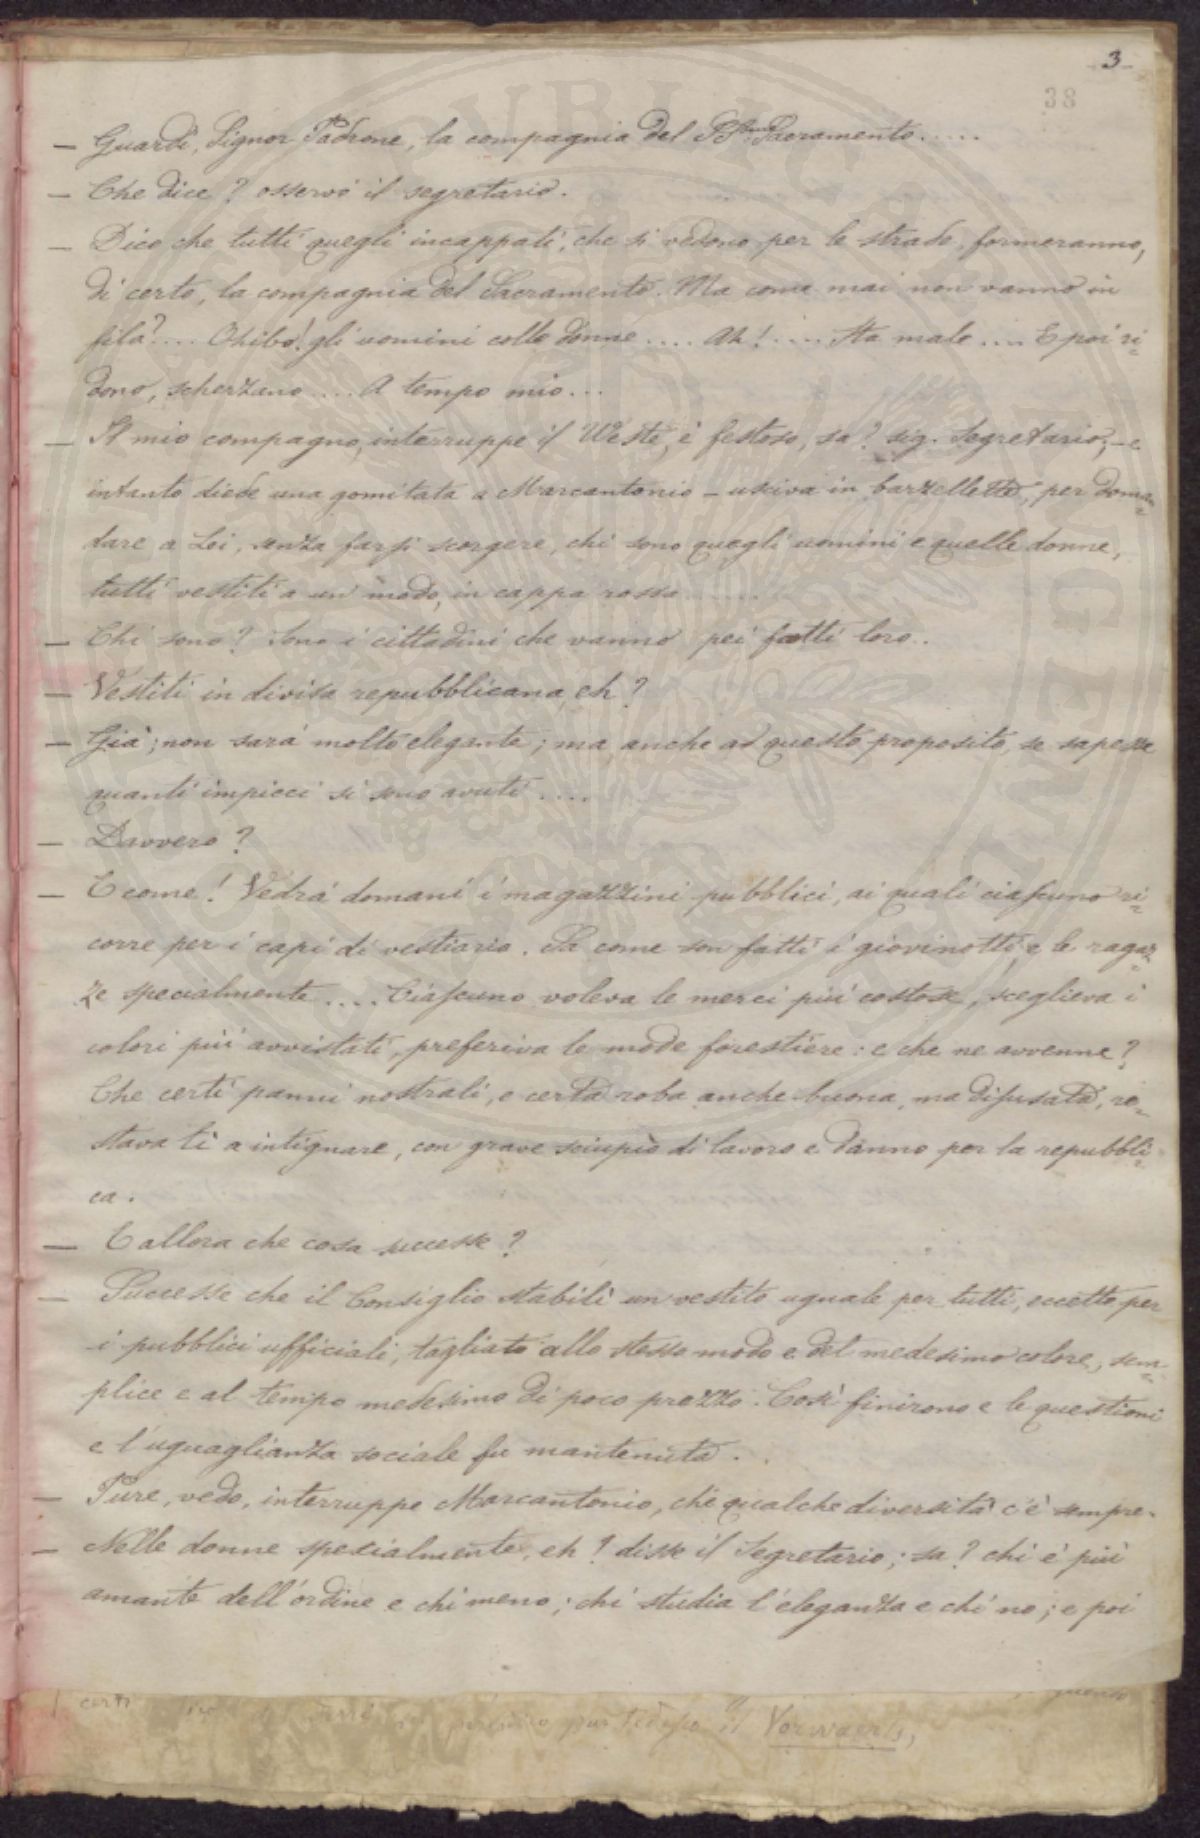 3
38
— Guardi, Signor Padrone, la compagnia del SS.mo Sacramento.....
— Che dice? osservò il segretario.
— Dico che tutti quegli incappati, che si vedono per le strade, formeranno,
di certo, la compagnia del Sacramento. Ma come mai non vanno in
fila?.... Ohibò! gli uomini colle donne.... Ah!.... Sta male.... E poi ri=
dono, scherzano.... A tempo mio...
— Il mio compagno, interruppe il Weste, è festoso, sa? sig. Segretario, — e
intanto diede una gomitata a Marcantonio — usciva in barzellette, per doman=
dare a Lei, senza farsi scorgere, chi sono quegli uomini e quelle donne,
tutti vestiti a un modo, in cappa rossa.......
— Chi sono? Sono i cittadini che vanno pei fatti loro..
— Vestiti in divisa repubblicana, eh?
— Già; non sarà molto elegante; ma, anche a questo proposito, se sapesse
quanti impicci si sono avuti....
— Davvero?
— E come! Vedrà domani i magazzini pubblici, ai quali ciascuno ri=
corre per i capi di vestiario. Sa come son fatti i giovinotti, e le ragaz=
ze specialmente.... Ciascuno voleva le merci più costose, sceglieva i
colori più avvistati, preferiva le mode forestiere: e che ne avvenne?
Che certi panni nostrali, e certa roba anche buona, ma disusata, re=
stava lì a intignare, con grave sciupìo di lavoro e danno per la repubbli=
ca.
— E allora che cosa successe?
— Successe che il Consiglio stabilì un vestito uguale per tutti, eccetto per
i pubblici ufficiali, tagliato allo stesso modo e del medesimo colore, sem=
plice e al tempo medesimo di poco prezzo. Così finirono e le questioni
e l'uguaglianza sociale fu mantenuta.
— Pure, vedo, interruppe Marcantonio, che qualche diversità c'è sempre.
— Nelle donne spezialmente, eh! disse il Segretario; sa? chi è più
amante dell'ordine e chi meno; chi studia l'eleganza e chi no; e poi
certi
questo
Vorwaerts,